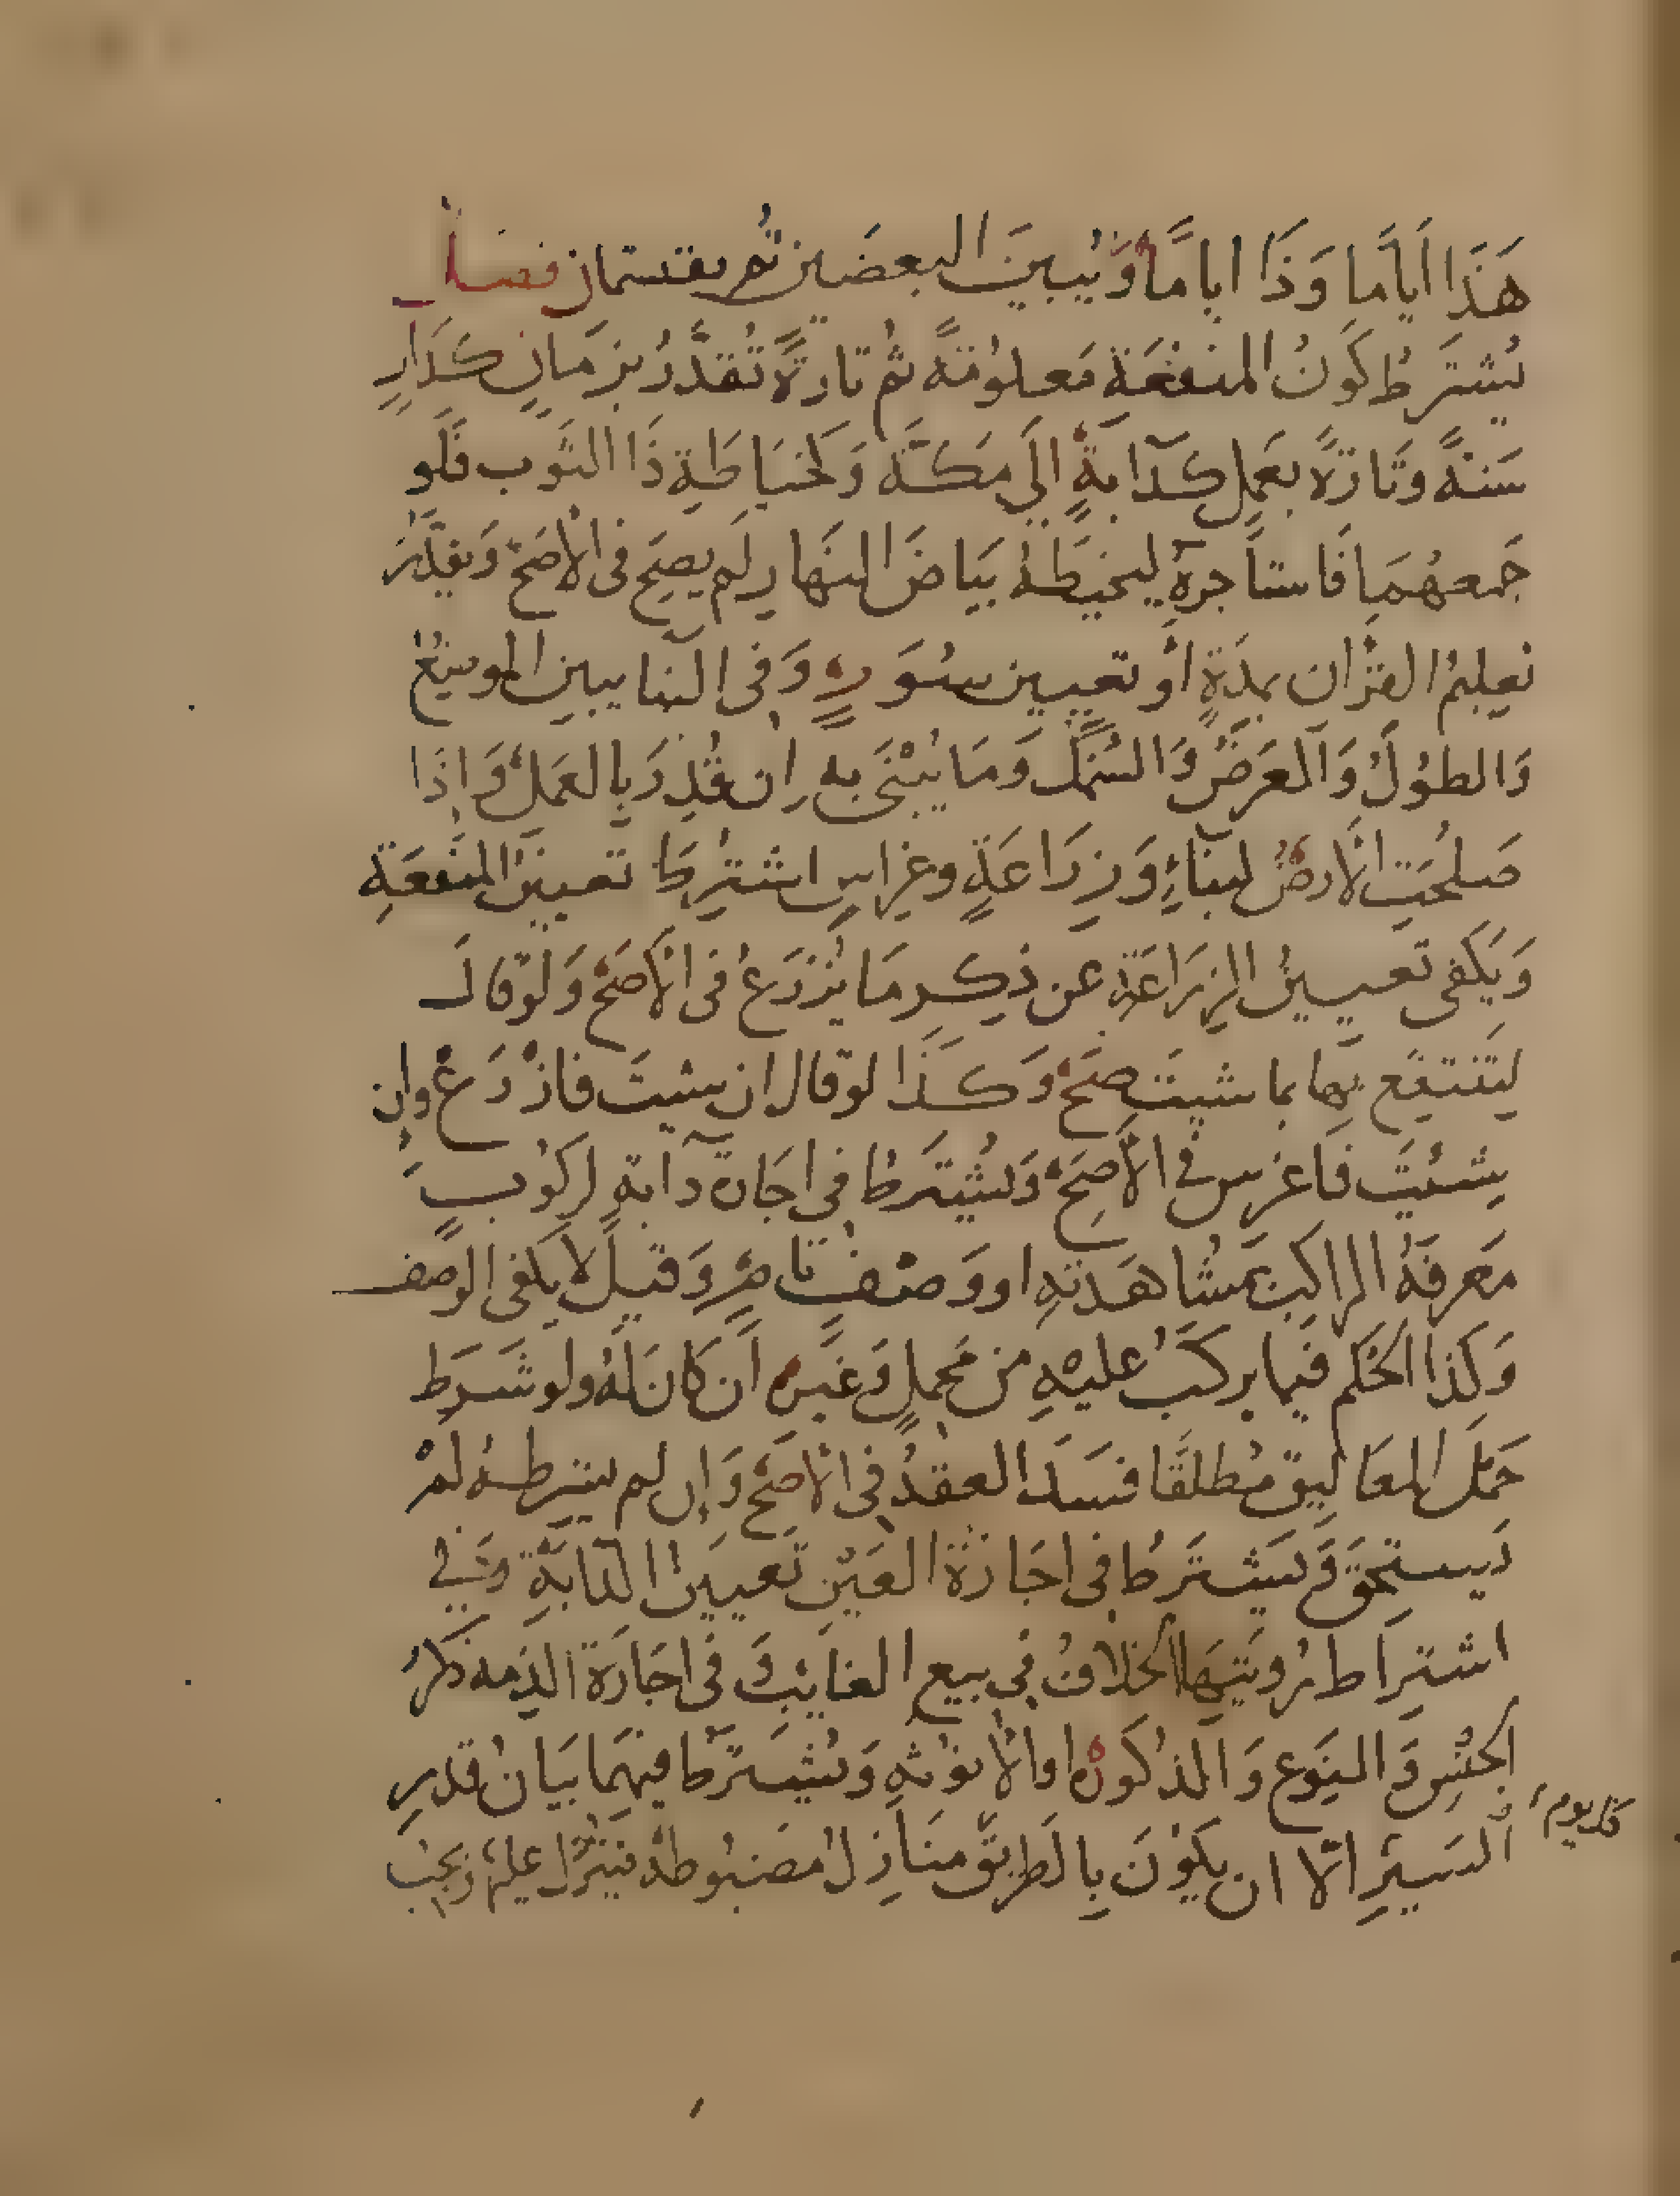 هَذَا اَيَامَا وَذَا ايامًا وَيُبينَ البعضَين ثم يقتسمان فصل
يُشترَطُ كَونُ المنفعَة مَعلُومَةً ثم تارةً تُقدَّرُ بزمَانٍ كدَارٍ
سَنةً وتَارَةً بعَملٍ كدآبةٍ الَى مَكّة وَلخيَاطَةِ ذَا الثَوب فلَو
جَمعهُمَا فَاستاَجرهِ ليخيطَهُ بيَاضَ النهَارِ لم يصِح فى الأصَح وَيقدَّرُ
تعليمُ القرْان بمدَةٍ اَو تعيين سُوَرٍ وَفى البنا يبين الموضِعُ
وَالطوُلُ وَالعَرضُ وَالسُمكُ وَمَا يُبْنَى بهِ اِن قُدِرَ بالعَمل وَاِذَا
صَلحُتِ الأرضُ لبنآءٍ وَزِرَاعَةٍ وغِراسٍ اشتُرِطَ تَعيينُ المنفعَةِ
وَيَكفى تعيينُ الزِرَاعَةِ عن ذِكرِ مَا يُزْرَعُ فى الأصَح وَلوقالَ
لِتَنتفِع بِهَا بما شيتَ صَحَ وَكَذَا لوقال ان شيتَ فازْرَعْ وإن
شئتَ فَاغرس فى الأصَحِ وَيشُتَرطُ فى اجَارَة دآبةٍ لركوُبٍ
مَعرفةُ الراكبِ بمشُاهَدتهِ او وَصْفٍ تامٍ وَقيلَ لا يكفى الوصفُ
وَكَذا الحُكم فيما يركَبُ عليْهِ من مَحملٍ وَغيَره اَن كَانَ لهُ ولو شَرَط
حَملَ المعَاليق مُطلقًا فسَدَ العقدُ فى الأصَح وَإن لم يشرطهُ لمْ
يَستحِق وَيَشترَطُ فى اجَارَة العَيْنِ تَعيينُ الدّابَةِ وَفي
اشتِراط رُؤيَتِهَا الخلاَفُ فى بيع الغَايِبِ وَفى اجَارَة الذِمه ذكرُ
الجنسِ وَالنَوع وَالذكُورهُ او الأنوثهِ وَيُشترَطُ فيهمَا بيَانُ قدرِ
السَيرِ كل يوم الّا ان يكوُنَ بالَطريق مَنَازِلُ مضبُوطةٌ فيُنزَّل عليهَا وَيجبُ